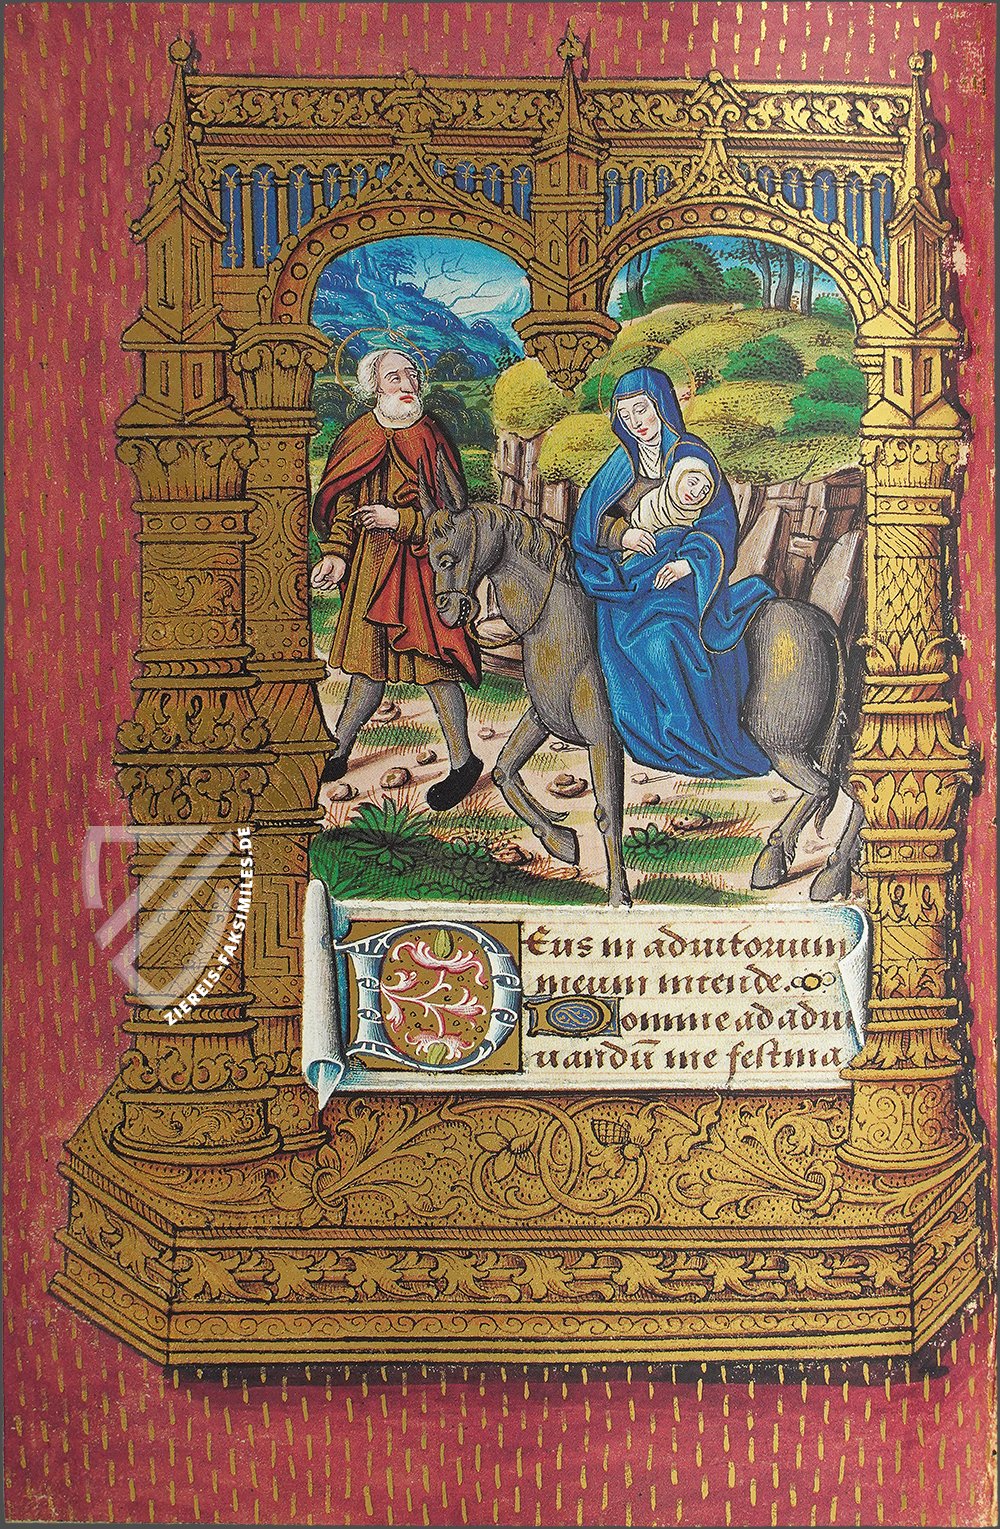 Deus in adiutorium
meum intende.
Domine ad adiu
uandū me festina
ZIEREIS-FAKSIMILES.DE